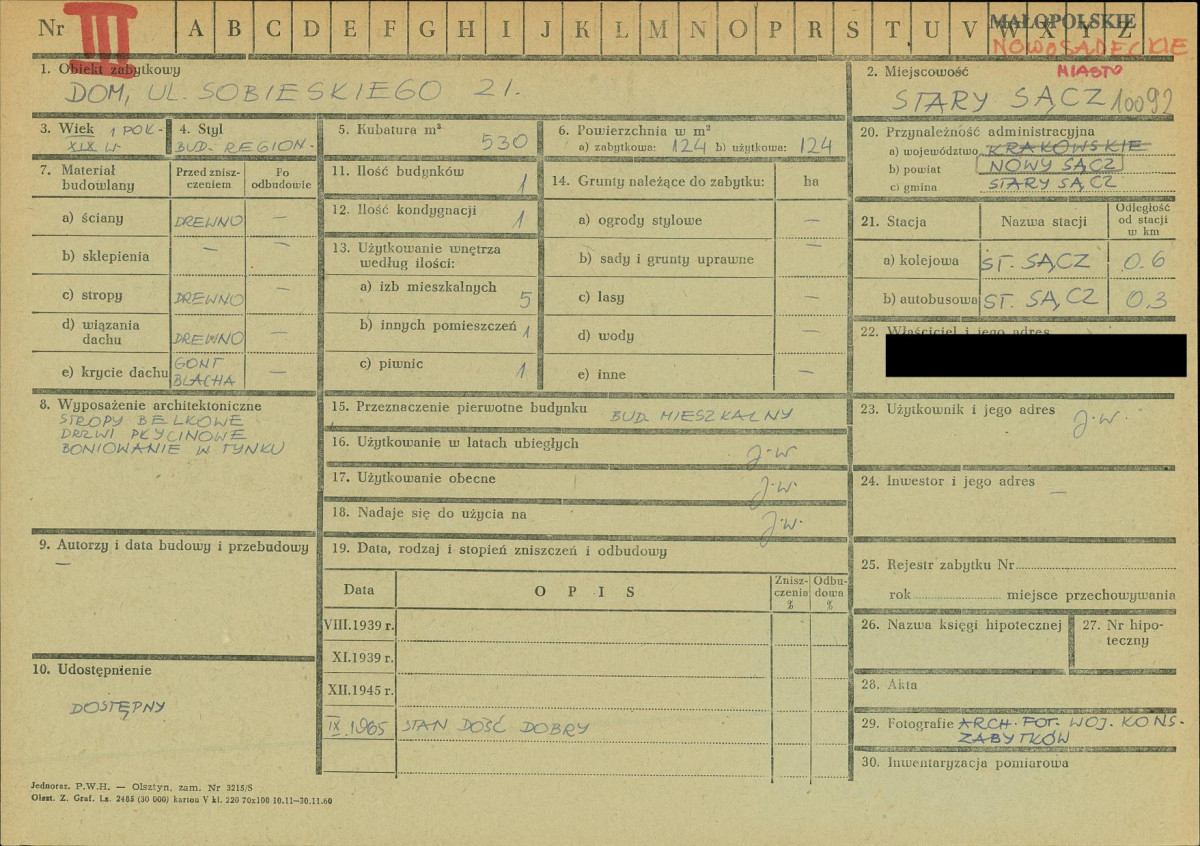 Nr III A B C D E F G H I J K L M N O P R S T U V W X Y Z
MAŁOPOLSKIE
NOWOSĄDECKIE
MIASTO
1. Obiekt zabytkowy
DOM, UL. SOBIESKIEGO 21.
2. Miejscowość
STARY SĄCZ 10092
3. Wiek 1 POŁ-
XIX W.
4. Styl
BUD. REGION.
5. Kubatura m³
530
6. Powierzchnia w m²
a) zabytkowa: 124 b) użytkowa: 124
7. Materiał budowlany
Przed zniszczeniem
Po odbudowie
a) ściany DREWNO —
b) sklepienia — —
c) stropy DREWNO —
d) wiązania dachu DREWNO —
e) krycie dachu GONT BLACHA —
8. Wyposażenie architektoniczne
STROPY BELKOWE
DRZWI PŁYCINOWE
BONIOWANIE W TYNKU
9. Autorzy i data budowy i przebudowy
—
10. Udostępnienie
DOSTĘPNY
11. Ilość budynków 1
12. Ilość kondygnacji 1
13. Użytkowanie wnętrza
według ilości:
a) izb mieszkalnych 5
b) innych pomieszczeń 1
c) piwnic 1
14. Grunty należące do zabytku: ha
a) ogrody stylowe —
b) sady i grunty uprawne —
c) lasy —
d) wody —
e) inne —
15. Przeznaczenie pierwotne budynku BUD. MIESZKALNY
16. Użytkowanie w latach ubiegłych J.W.
17. Użytkowanie obecne J.W.
18. Nadaje się do użycia na J.W.
19. Data, rodzaj i stopień zniszczeń i odbudowy
Data OPIS Zniszczenia % Odbudowa %
VIII.1939 r.
XI.1939 r.
XII.1945 r.
IX.1965 STAN DOŚĆ DOBRY
20. Przynależność administracyjna
a) województwo KRAKOWSKIE
b) powiat NOWY SĄCZ
c) gmina STARY SĄCZ
21. Stacja Nazwa stacji Odległość od stacji w km
a) kolejowa ST. SĄCZ 0.6
b) autobusowa ST. SĄCZ 0.3
22. Właściciel i jego adres
23. Użytkownik i jego adres
J.W.
24. Inwestor i jego adres
—
25. Rejestr zabytku Nr
rok miejsce przechowywania
26. Nazwa księgi hipotecznej
27. Nr hipoteczny
28. Akta
29. Fotografie ARCH. FOT. WOJ. KONS.
ZABYTKÓW
30. Inwentaryzacja pomiarowa
Jednoraz. P.W.H. — Olsztyn, zam. Nr 3215/S
Olszt. Z. Graf. Lz. 2485 (30 000) karton V kl. 220 70x100 10.11—30.11.60